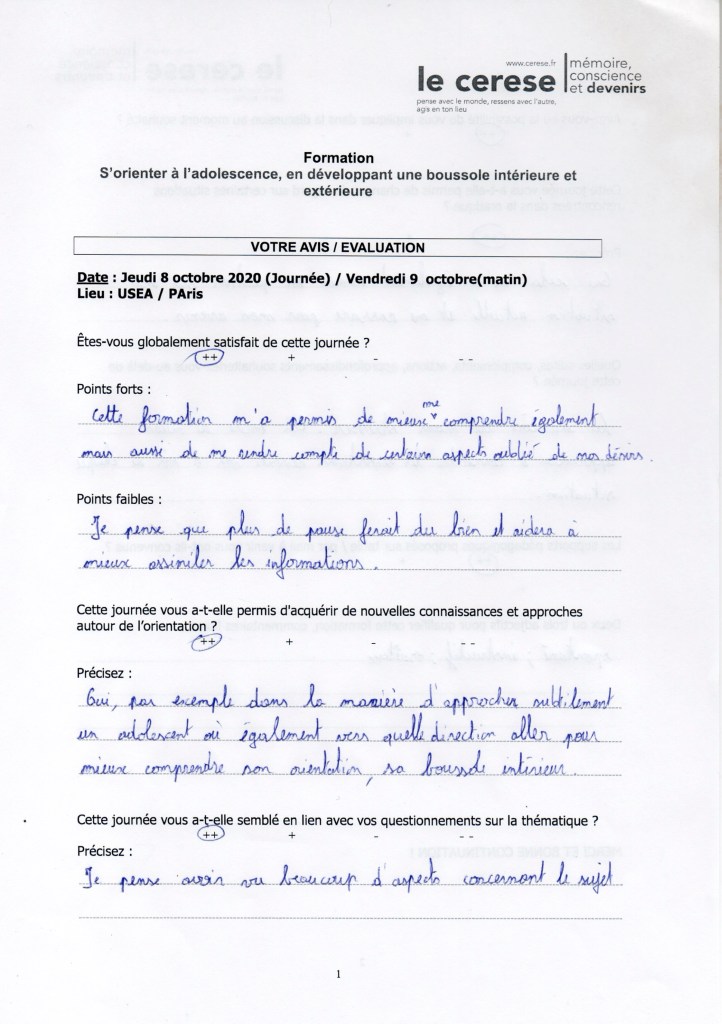 www.cerese.fr
le cerese
pense avec le monde, ressens avec l'autre,
agis en ton lieu
mémoire,
conscience
et devenirs
Formation
S'orienter à l'adolescence, en développant une boussole intérieure et
extérieure
VOTRE AVIS / EVALUATION
Date : Jeudi 8 octobre 2020 (Journée) / Vendredi 9 octobre(matin)
Lieu : USEA / PAris
Êtes-vous globalement satisfait de cette journée ?
++ + - --
Points forts :
Cette formation m'a permis de mieux me comprendre également
mais aussi de me rendre compte de certains aspects oublié de nos désirs.
Points faibles :
Je pense que plus de pause ferait du bien et aidera à
mieux assimiler les informations.
Cette journée vous a-t-elle permis d'acquérir de nouvelles connaissances et approches
autour de l'orientation ?
++ + - --
Précisez :
Oui, par exemple dans la manière d'approcher subtilement
un adolescent où également vers quelle direction aller pour
mieux comprendre son orientation, sa boussole intérieur.
Cette journée vous a-t-elle semblé en lien avec vos questionnements sur la thématique ?
++ + - --
Précisez :
Je pense avoir vu beaucoup d'aspects concernant le sujet
1